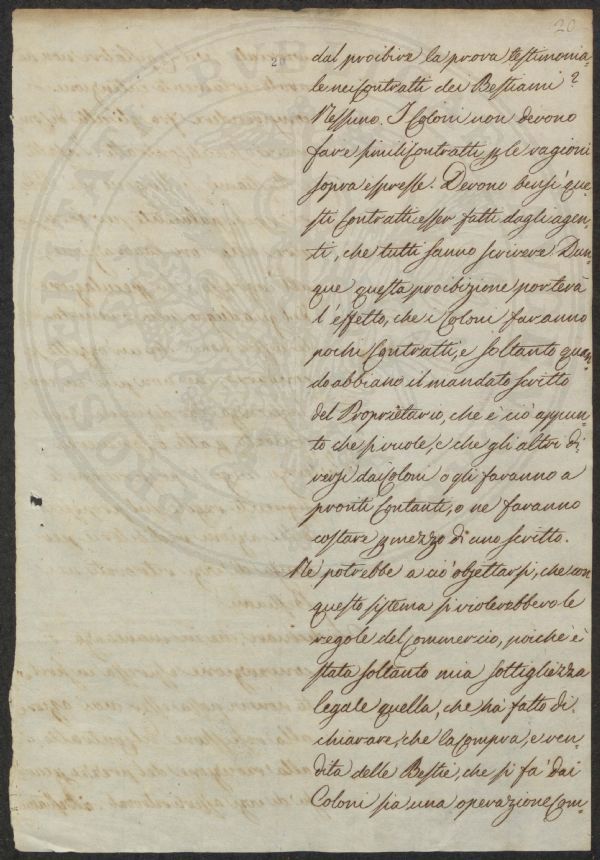 20
20
dal proibire la prova testimonia-
le nei Contratti dei Bestiami?
Nessuno. I Coloni non devono
fare simili Contratti p le ragioni
sopra espresse. Devono bensì que-
sti Contratti esser fatti dagli agen-
ti, che tutti sanno scrivere Dun-
que questa proibizione porterà
l'effetto, che i Coloni faranno
pochi Contratti, e soltanto quan-
do abbiano il mandato scritto
del Proprietario, che è ciò appun-
to che si vuole, e che gli altri di-
versi dai Coloni o gli faranno a
pronti Contanti, o ne faranno
costare p mezzo di uno scritto.
Né potrebbe a ciò objettarsi, che con
questo sistema si violerebbero le
regole del Commercio, poichè è
stata soltanto mia sottigliezza
legale quella, che ha fatto di-
chiarare, che la Compra, e ven-
dita delle Bestie, che si fà dai
Coloni sia una operazione Com-